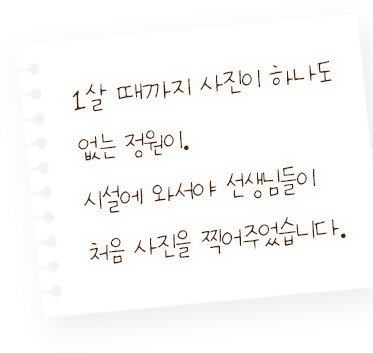 1살 때까지 사진이 하나도
없는 정원이.
시설에 와서야 선생님들이
처음 사진을 찍어주었습니다.